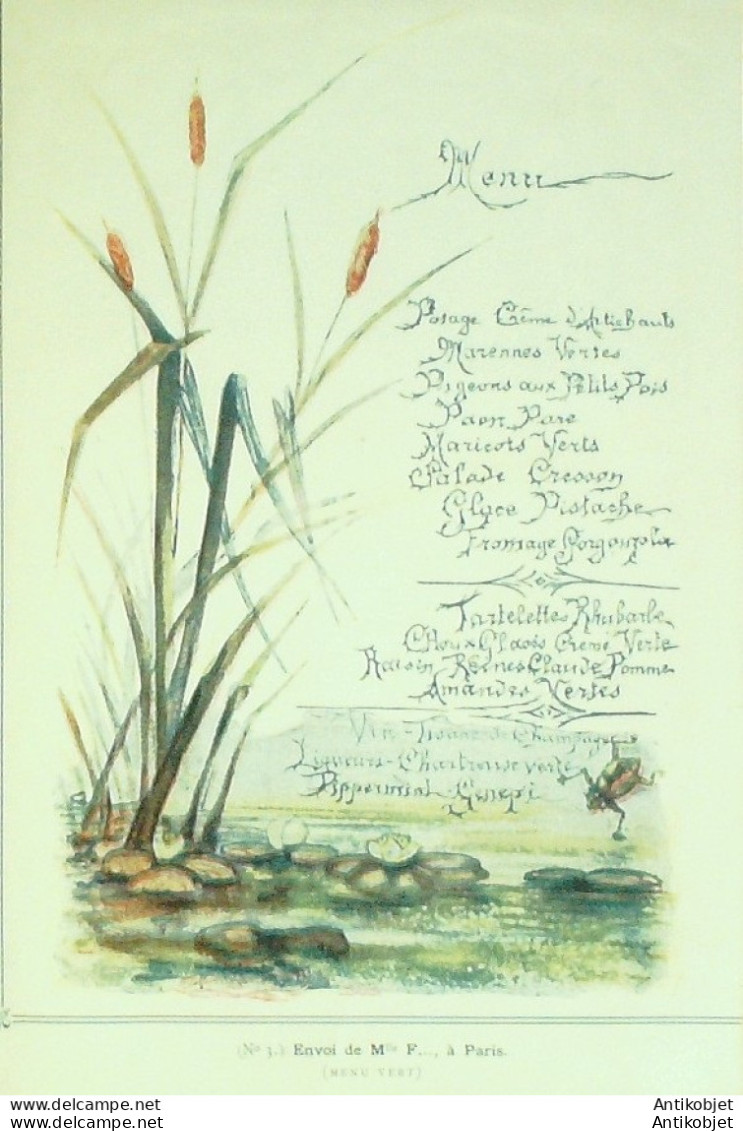 Menu
Potage Crême d'Artichauts
Marennes Vertes
Pigeons aux Petits Pois
Paon Paré
Haricots Verts
Salade Cresson
Glace Pistache
Fromage Gorgonzola
Tartelettes Rhubarbe
Choux Glacés Crème Verte
Raisin Reines Claude Pomme
Amandes Vertes
Vin - Tisane de Champagne
Liqueurs - Chartreuse verte
Pippermint - Genepi
(No 3.) Envoi de Mlle F..., à Paris.
(MENU VERT)
Antikobjet
Antikobjet
Antikobjet
Antikobjet